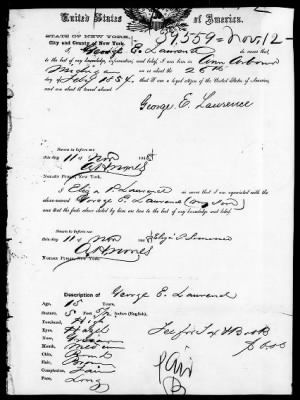 United States of America.
39559 = Nov. 12
STATE OF NEW YORK,
City and County of New York.
I, George E. Lawrence do swear that,
to the best of my knowledge, information, and belief, I was born in Ann Arbour
Michigan on or about the 26th
day of 1854, that I am a legal citizen of the United States of America,
and am about to travel abroad.
George E. Lawrence
Sworn to before me
this day 11 of Nov 186
NOTARY PUBLIC, New York.
I Eliza P. Lawrence do swear that I am acquainted with the
above-named George E. Lawrence (my son)
and that the facts above stated by him are true to the best of my knowledge and belief.
Sworn to before me
this day 11 of Nov 186 Eliza P. Lawrence
NOTARY PUBLIC, New York.
Description of George E. Lawrence
Age, 15 Years.
Stature, 5 Ft. (English).
Forehead, High
Eyes, Hazel
Nose, Grecian
Mouth, Medium
Chin, Round
Hair, Brown
Complexion, Fair
Face, Long